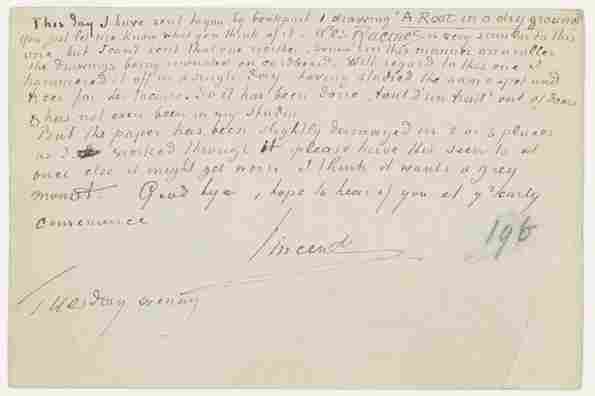 This day I have sent to you by bookpost 1 drawing 'A Root in a dry ground'
You just let me know what you think of it. 'Les Racines' is very similar to this
one, but I cant send that one neither some in this manner are smaller
the drawings being mounted on cardboard. With regard to this one I
hammered it off in a single day, having studied the same spot and
trees for les racines. So it has been done 'tout d'un trait' out of doors
& has not even been in my studio
But the paper has been slightly damaged in 2 or 3 places
as I worked through it please have this seen to at
once else it might get worn. I think it wants a grey
mount. Good bye, I hope to hear of you at yr early
convenience
Vincent
196
Tuesday evening